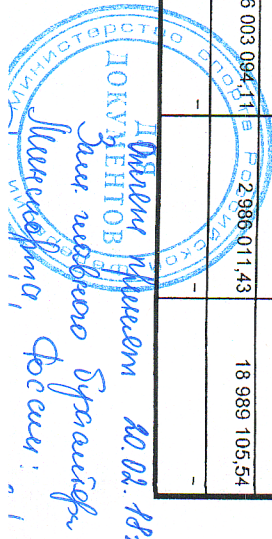 6 003 094,11 2 986 011,43 18 989 105,54
- - -
МИНИСТЕРСТВО СПОРТА РОССИЙСКОЙ
ДЛЯ
ДОКУМЕНТОВ
Отчет принят 20.02.18
Зам. главного бухгалтера
Минспорта России: